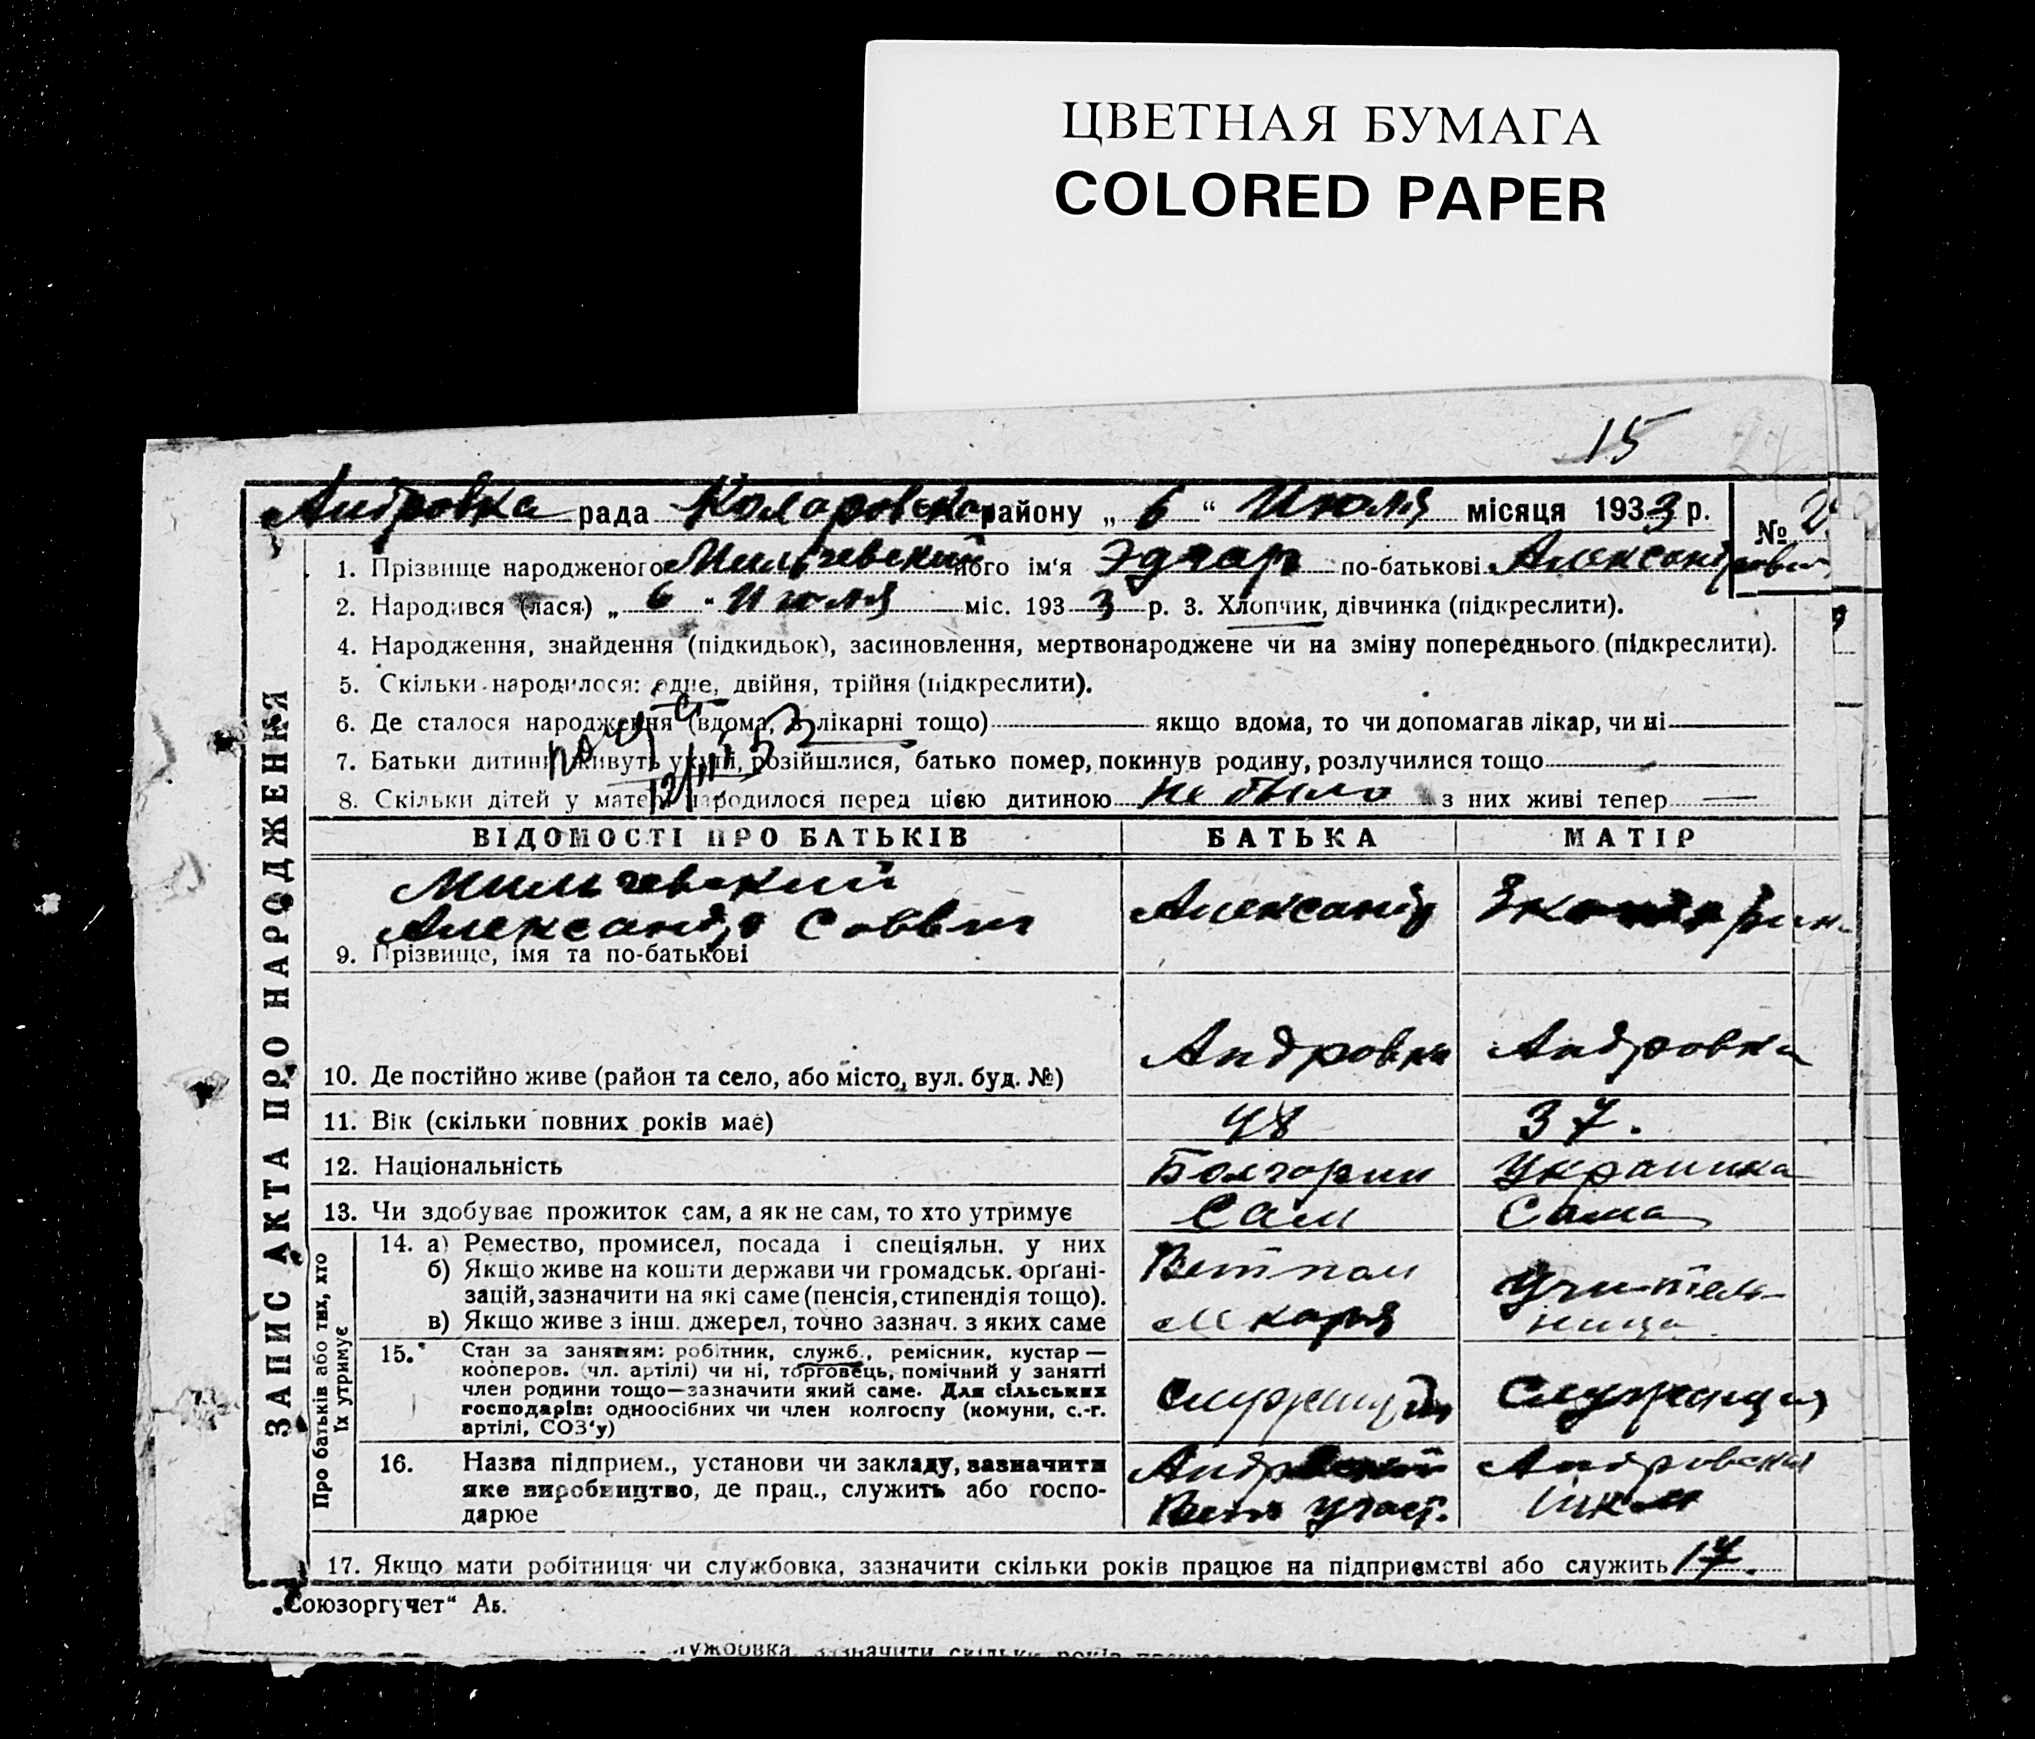 ЦВЕТНАЯ БУМАГА
COLORED PAPER
15
Андровка рада Коларовска району „ 6 “ Июля місяця 1933 р. № 2
ЗАПИС АКТА ПРО НАРОДЖЕННЯ
1. Прізвище народженого Мильчевский його ім'я Эдгар по-батькові Александрович
2. Народився (лася) „ 6 “ Июля міс. 1933 р. 3. Хлопчик, дівчинка (підкреслити).
4. Народження, знайдення (підкидьок), засиновлення, мертвонароджене чи на зміну попереднього (підкреслити).
5. Скільки народилося: одне, двійня, трійня (підкреслити).
6. Де сталося народження (вдома, в лікарні тощо) якщо вдома, то чи допомагав лікар, чи ні
7. Батьки дитини живуть укупі, розійшлися, батько помер, покинув родину, розлучилися тощо
8. Скільки дітей у матери народилося перед цією дитиною не было з них живі тепер —
ВІДОМОСТІ ПРО БАТЬКІВ БАТЬКА МАТІР
Мильчевский
Александр Саввич Александр
9. Прізвище, імя та по-батькові
Андровка Андровка
10. Де постійно живе (район та село, або місто, вул. буд. №)
11. Вік (скільки повних років має) 48 37.
12. Національність Болгорин Украинка
13. Чи здобуває прожиток сам, а як не сам, то хто утримує Сам Сама
Про батьків або тих, хто їх утримує
14. а) Ремество, промисел, посада і спеціяльн. у них
б) Якщо живе на кошти держави чи громадськ. органі-
зацій, зазначити на які саме (пенсія, стипендія тощо).
в) Якщо живе з інш. джерел, точно зазнач. з яких саме
Учитель-
ница
15. Стан за заняттям: робітник, служб., ремісник, кустар—
кооперов. (чл. артілі) чи ні, торговець, помічний у занятті
член родини тощо—зазначити який саме. Для сільських
господарів: одноосібних чи член колгоспу (комуни, с.-г.
артілі, СОЗ'у)
Служащий Служащия
16. Назва підприєм., установи чи закладу, зазначити
яке виробництво, де прац., служить або госпо-
дарює
Вет участ.
Андровская
17. Якщо мати робітниця чи службовка, зазначити скільки років працює на підприємстві або служить 17.
„Союзоргучет“ Аб.